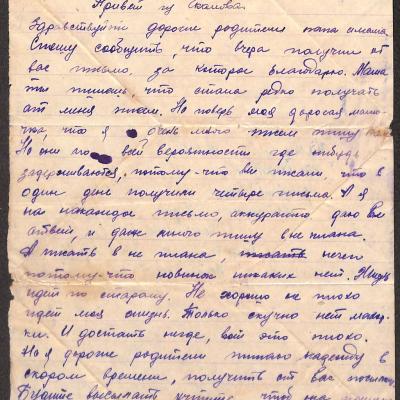 Привет из
Здравствуйте дорогие родители папа и мама
Спешу сообщить, что вчера получил от
вас письмо, за которое благодарю. Мама
ты пишешь что стала редко получать
от меня писем. Но поверь моя дорогая мамо-
чка, что я очень много писем пишу вам
Но они по всей вероятности где нибудь
задерживаются, потому-что вы писали, что в
один день получили четыре письма. А я
на каждое письмо, аккуратно даю вам
ответ, и даже много пишу вне плана.
А писать в не плана, писать нечего
потому-что новинок никаких нет. Жизнь
идет по старому. Не хорошо не плохо
идет моя жизнь. Только скучно нет махор-
ки. И достать негде, вот это плохо.
Но я дорогие родители питаю надежду в
скором времени, получить от вас посылку
Будите высылать учтите, чтоб на